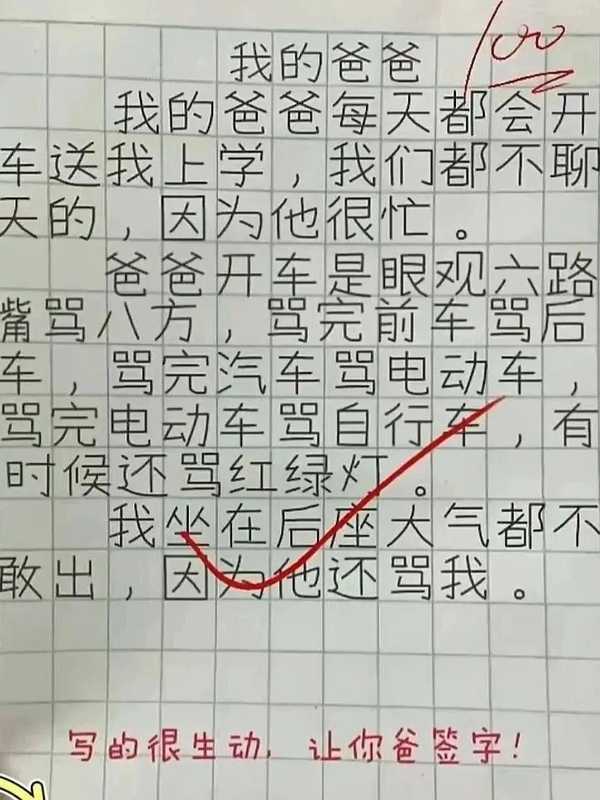 100
我的爸爸
我的爸爸每天都会开
车送我上学，我们都不聊
天的，因为他很忙。
爸爸开车是眼观六路
嘴骂八方，骂完前车骂后
车，骂完汽车骂电动车，
骂完电动车骂自行车，有
时候还骂红绿灯。
我坐在后座大气都不
敢出，因为他还骂我。
写的很生动，让你爸签字！